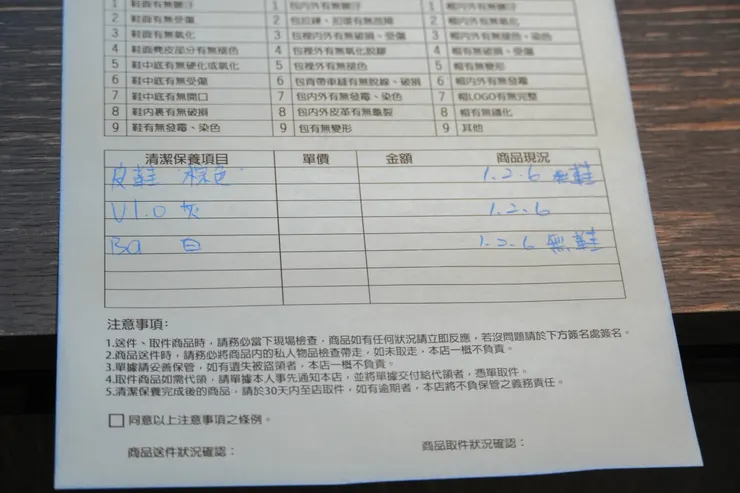 1 鞋面有無髒汙 1 包內外有無髒汙 1 帽內外有無髒汙
2 鞋面有無受傷 2 包拉鍊、扣環有無故障 2 帽內外有無氧化
3 鞋面有無氧化 3 包裡內外有無破損、受傷 3 帽內外有無褪色、染色
4 鞋面麂皮部分有無褪色 4 包裡外有無氧化脫膠 4 帽有無破損、受傷
5 鞋中底有無硬化或氧化 5 包裡外有無褪色 5 帽有無變形
6 鞋中底有無受傷 6 包背帶車縫有無脫線、破損 6 帽內外有無發霉
7 鞋中底有無開口 7 包內外有無發霉、染色 7 帽LOGO有無完整
8 鞋內裏有無破損 8 包內外皮革有無龜裂 8 帽有無鏽化
9 鞋有無發霉、染色 9 包有無變形 9 其他
清潔保養項目 單價 金額 商品現況
皮鞋 棕色 1.2.6 無鞋
V1.0 灰 1.2.6
Ba 白 1.2.6 無鞋
注意事項:
1.送件、取件商品時,請務必當下現場檢查,商品如有任何狀況請立即反應,若沒問題請於下方簽名處簽名。
2.商品送件時,請務必將商品內的私人物品檢查帶走,如未取走,本店一概不負責。
3.單據請妥善保管,如有遺失被盜領者,本店一概不負責。
4.取件商品如需代領,請單據本人事先通知本店,並將單據交付給代領者,憑單取件。
5.清潔保養完成後的商品,請於30天內至店取件,如有逾期者,本店將不負保管之義務責任。
同意以上注意事項之條例。
商品送件狀況確認: 商品取件狀況確認: